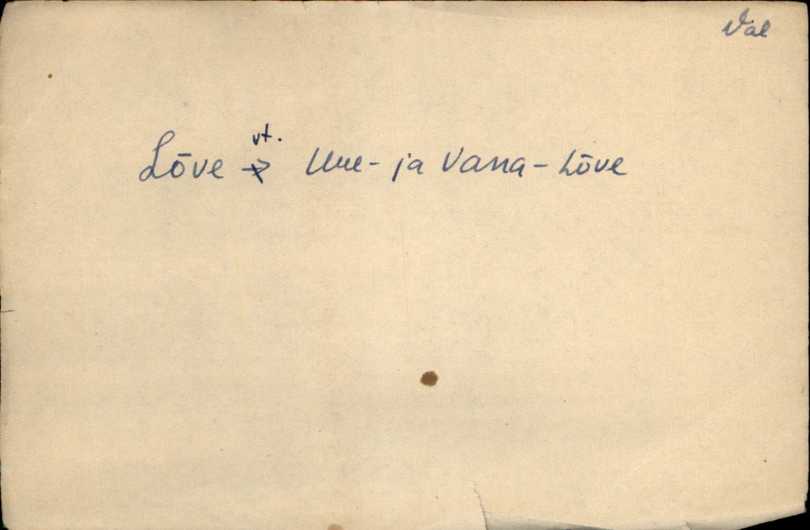 Val
Lõve vt. Uue- ja Vana-Lõve